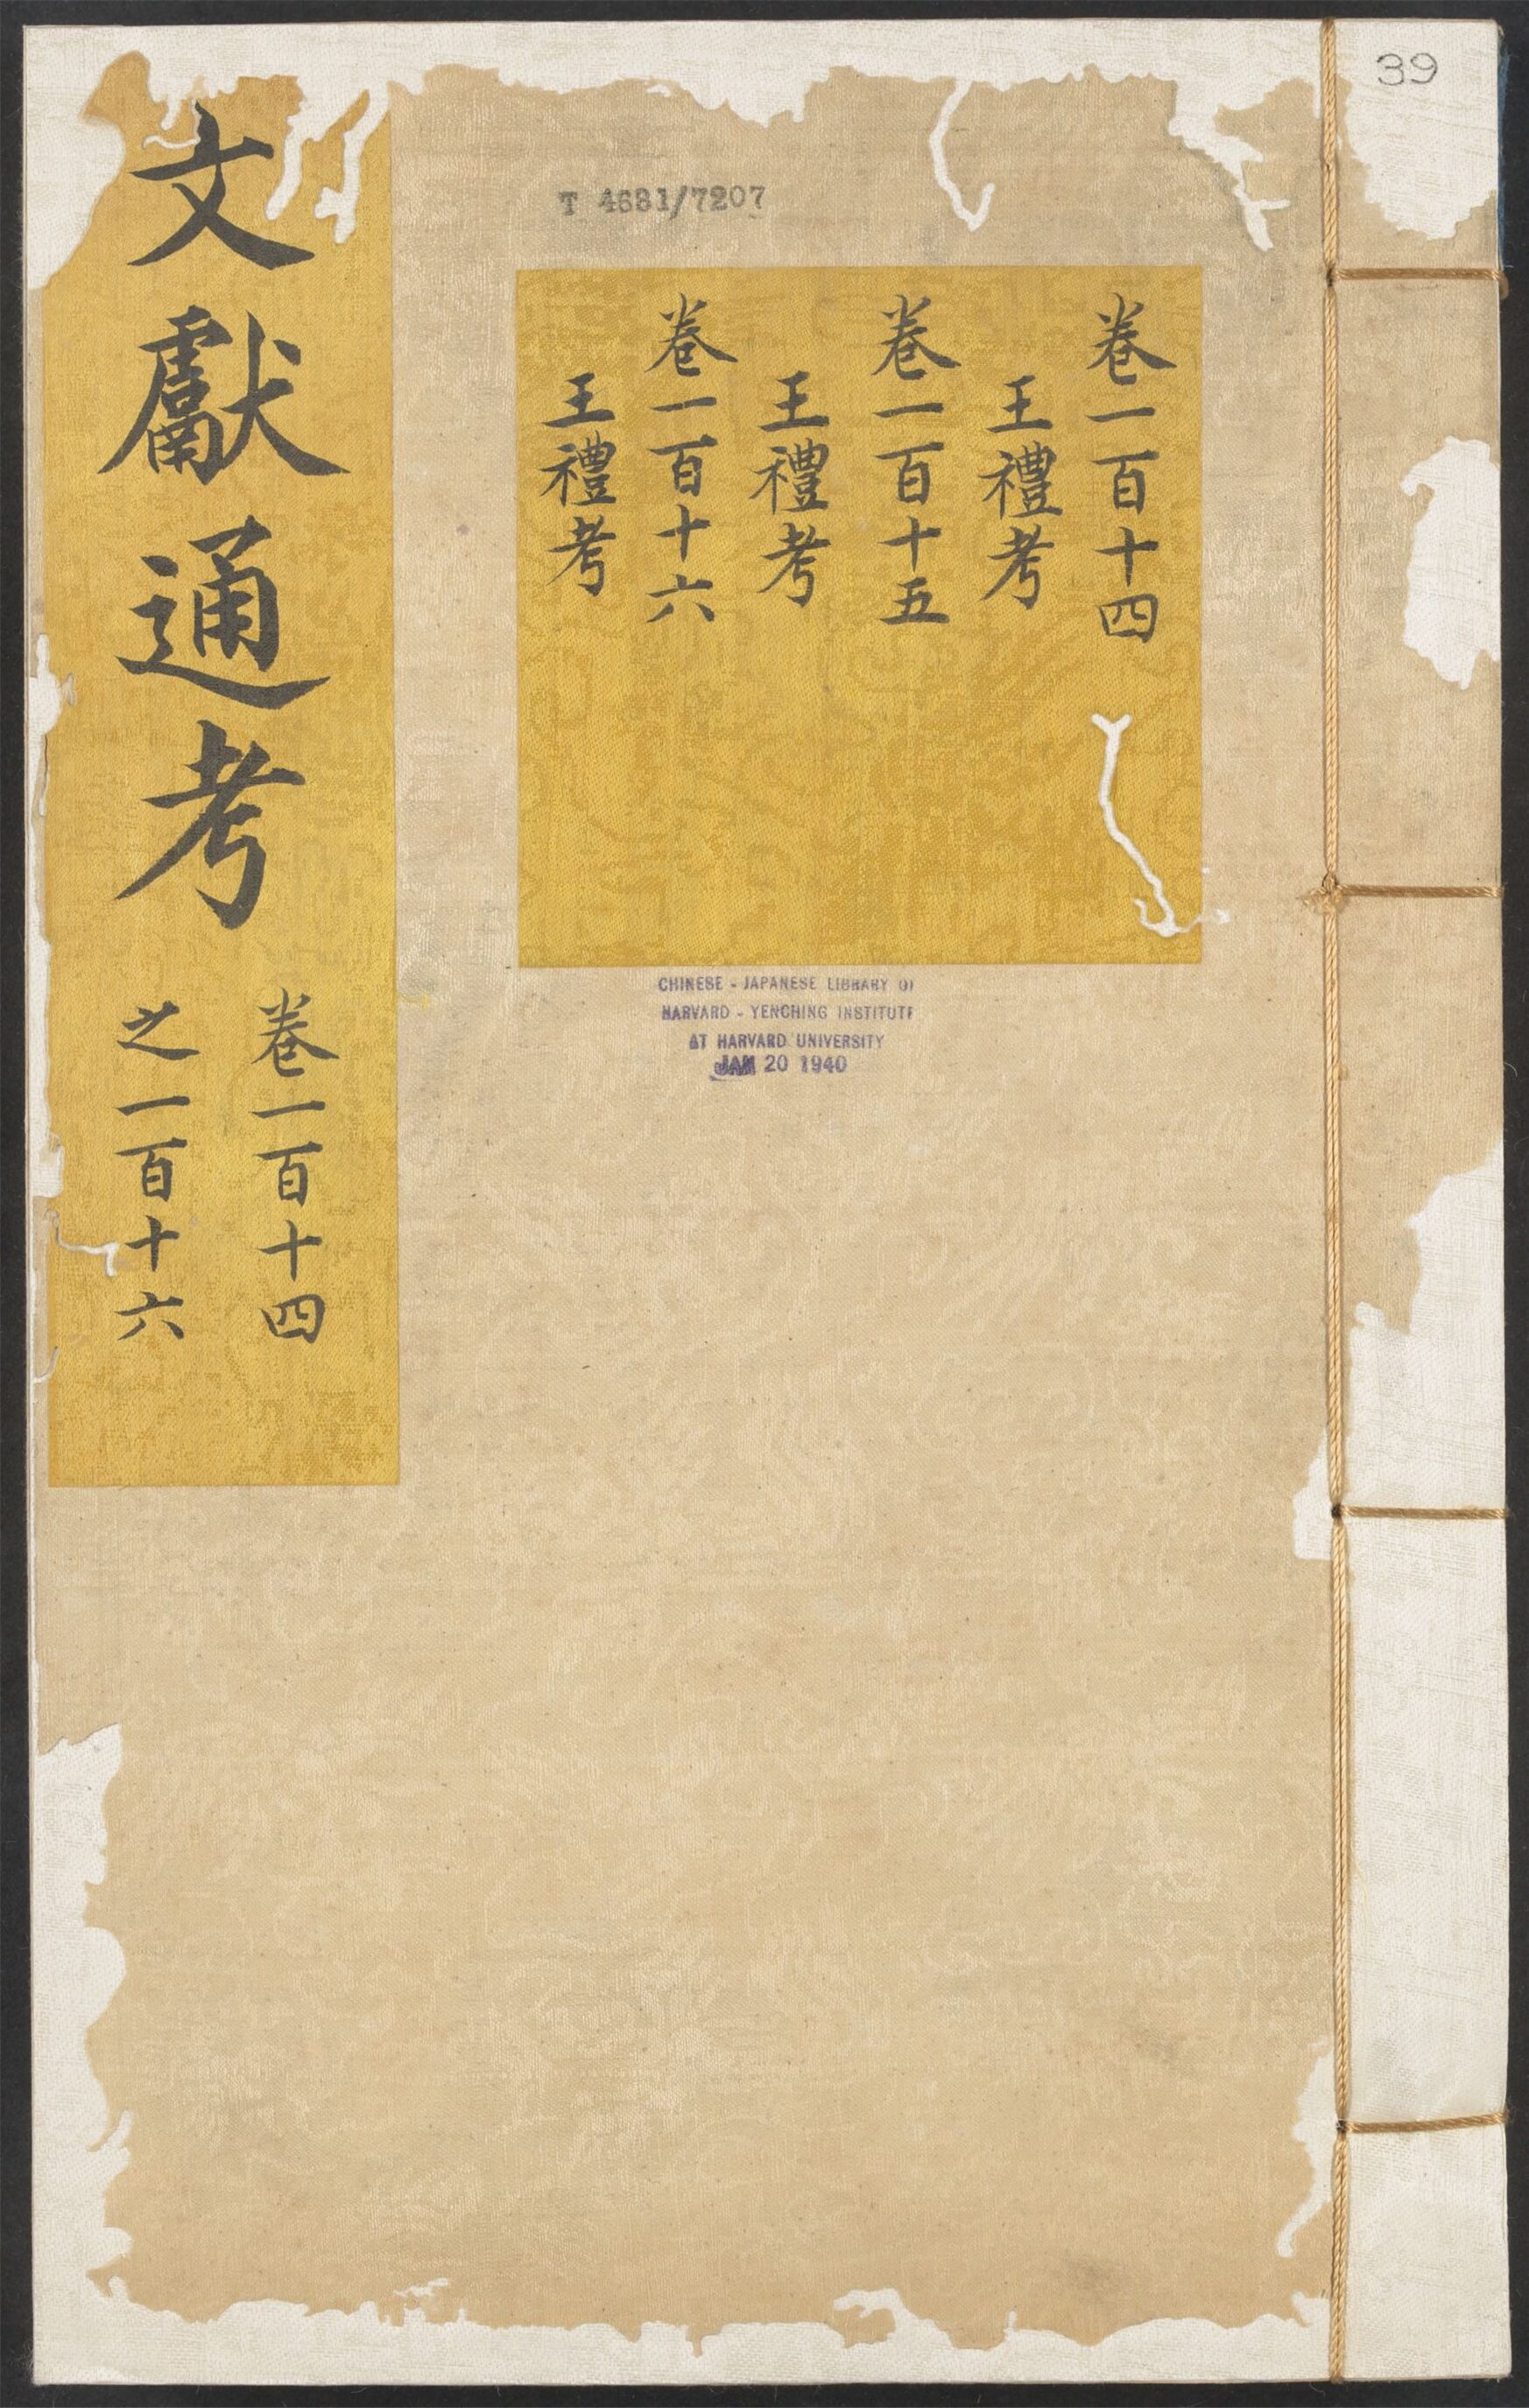 39
T 4681/7207
文獻通考
卷一百十四
之一百十六
卷一百十四
王禮考
卷一百十五
王禮考
卷一百十六
王禮考
CHINESE - JAPANESE LIBRARY OF
HARVARD - YENCHING INSTITUTE
AT HARVARD UNIVERSITY
JAN 20 1940